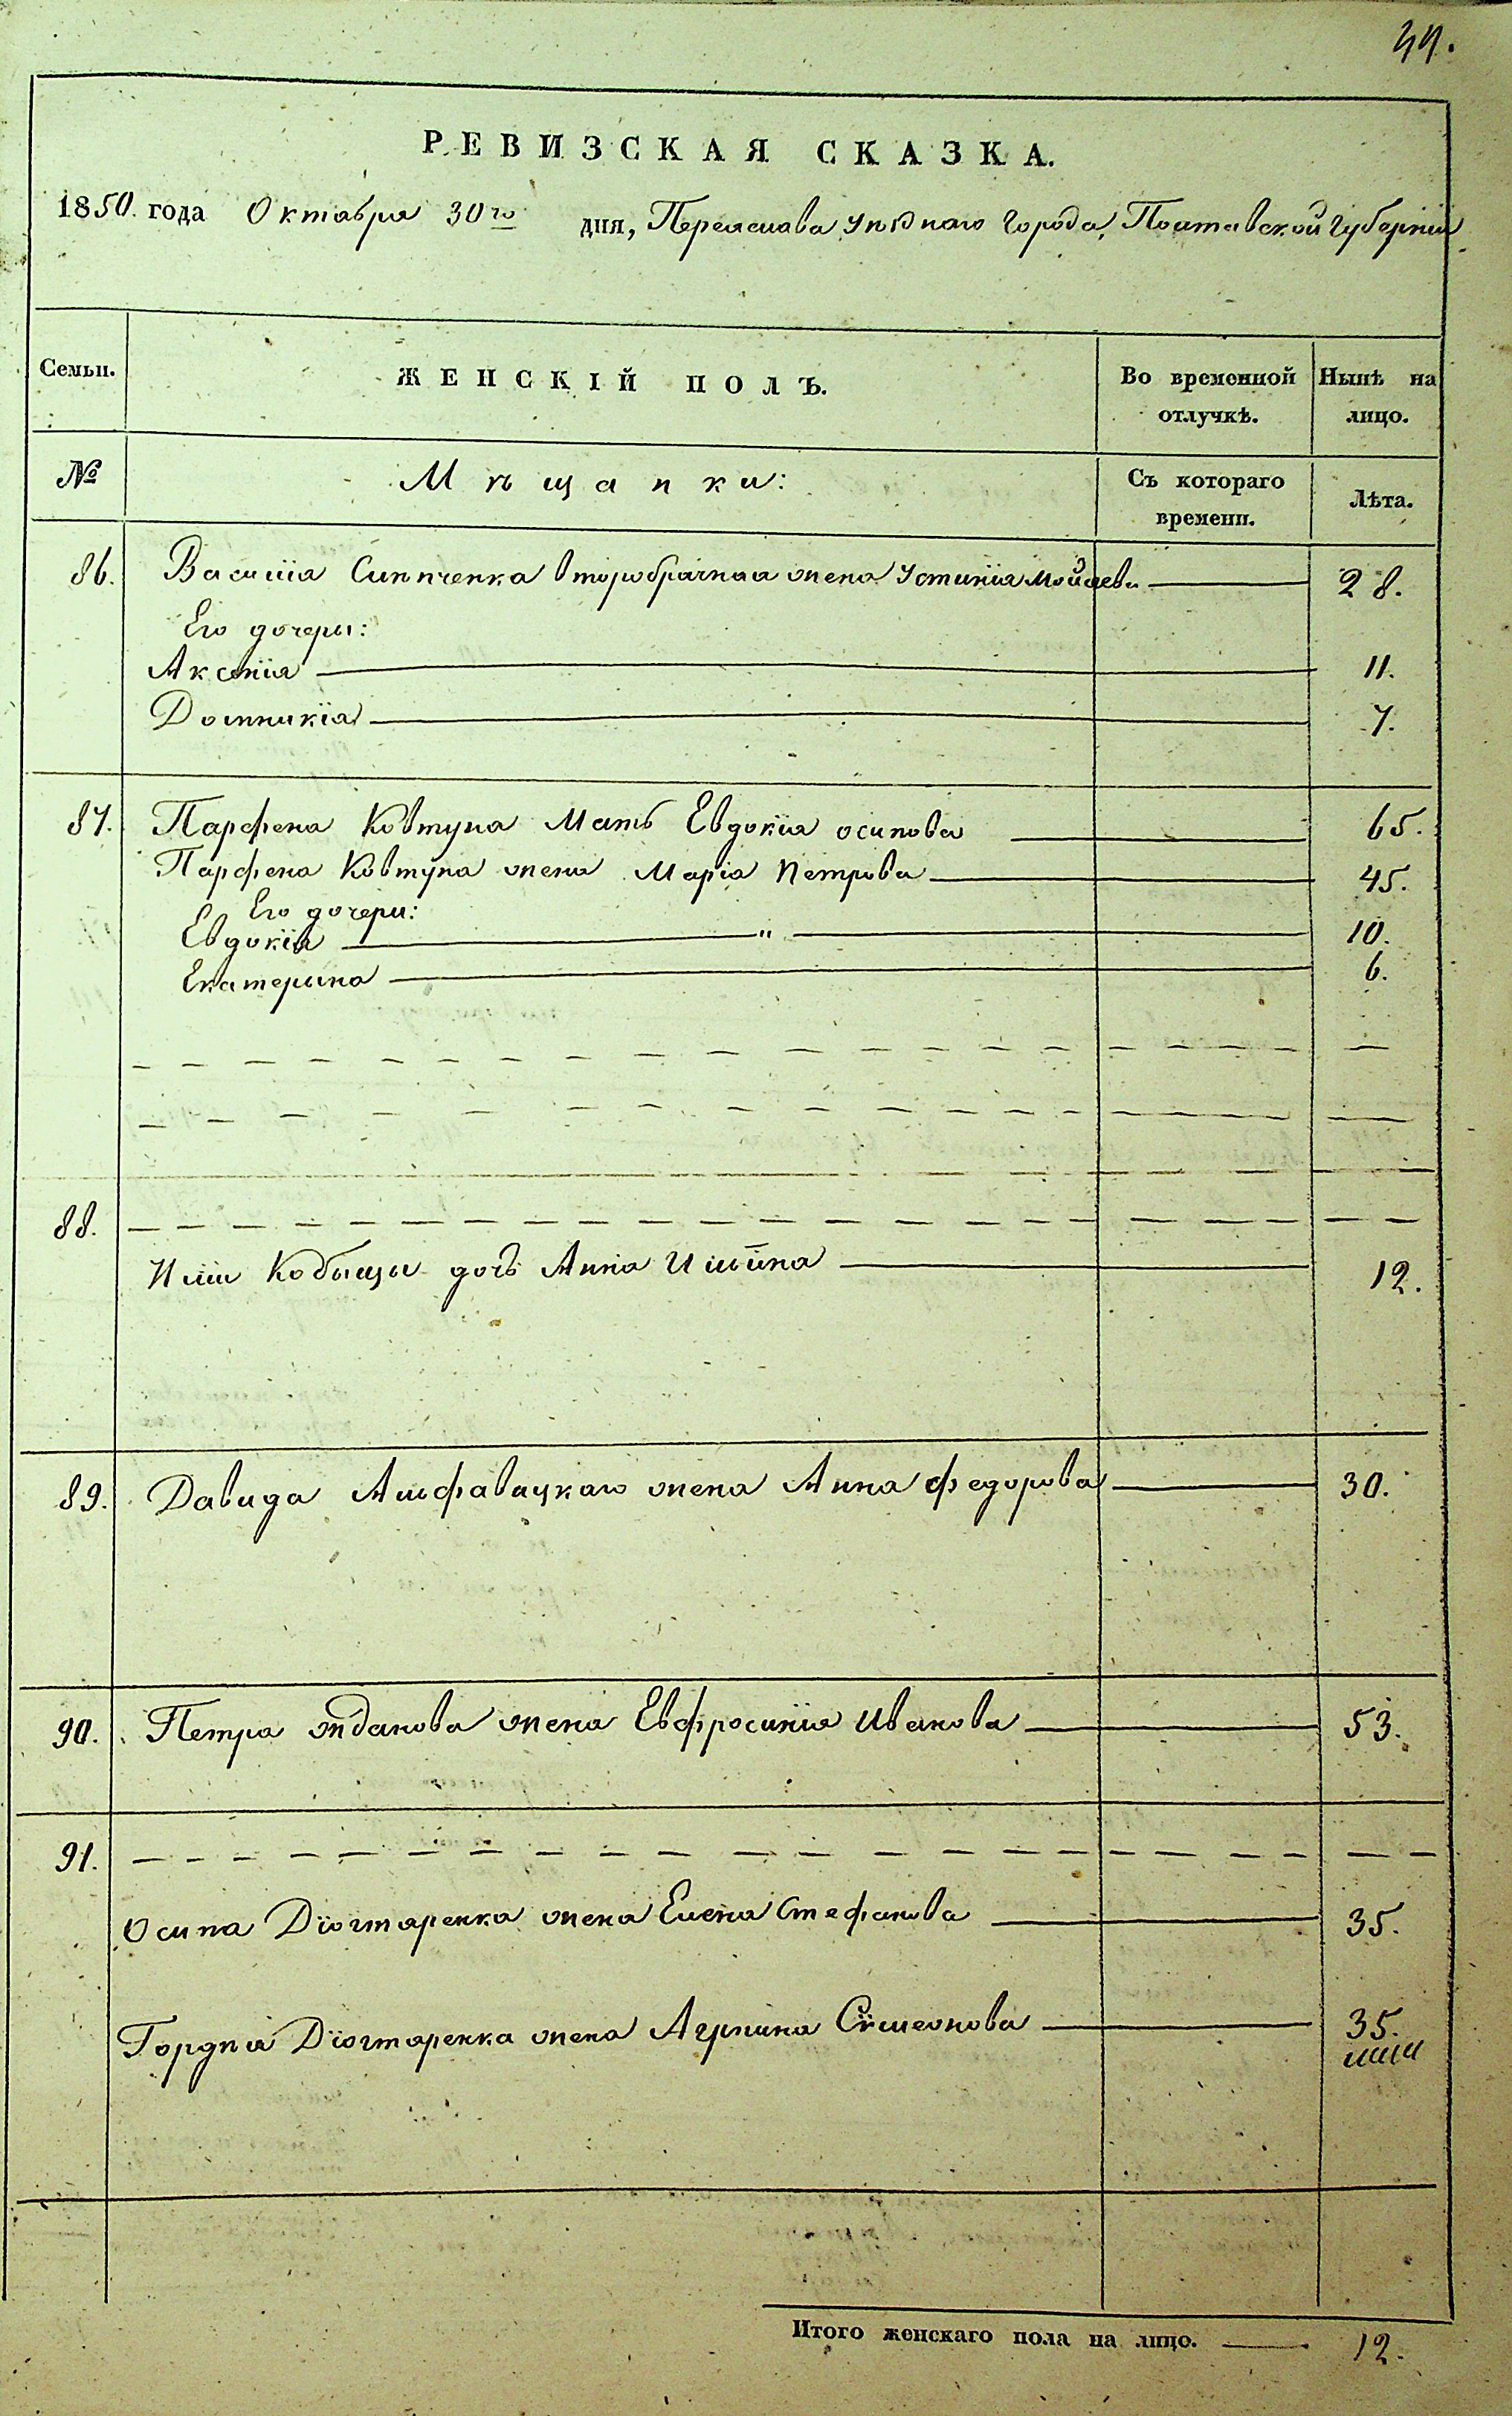 44.
РЕВИЗСКАЯ СКАЗКА.
1850. года Октября 30го дня, Переяслава уѣзднаго города, Полтавской губерніи
Семьи. ЖЕНСКІЙ ПОЛЪ. Во временной отлучкѣ. Нынѣ на лицо.
№ Мѣщанки: Съ котораго времени. Лѣта.
86. Василія второбрачная жена Устинія Мойсеева 28.
Его дочери:
Аксенія 11.
Домникія 7.
87. Парфена Ковтуна мать Евдокія Осипова 65.
Парфена Ковтуна жена Марія Петрова 45.
Его дочери:
Евдокія " 10.
Екатерина 6.
88.
Иліи Кобыщы дочь Анна Ильина 12.
89. Давида Альфавицкаго жена Анна Федорова 30.
90. Петра Жданова жена Евфросинія Иванова 53.
91.
Осипа Діогтяренка жена Елена Стефанова 35.
Гордѣя Діогтяренка жена Агрипина Симеонова 35.
Итого женскаго пола на лицо. 12.